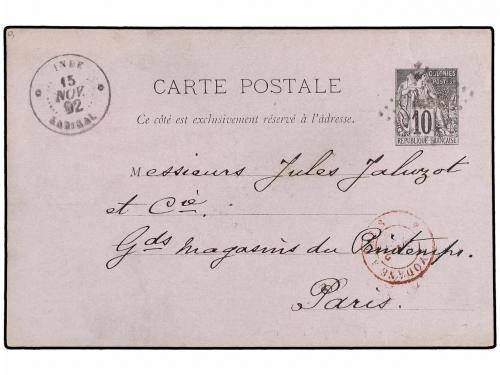 INDE
15
NOV.
92
KARIKAL
CARTE POSTALE
Ce côté est exclusivement réservé à l'adresse.
COLONIES
POSTES
10
RÉPUBLIQUE FRANÇAISE
Messieurs Jules Jaluzot
et Cie.
Gds Magasins du Printemps.
Paris.